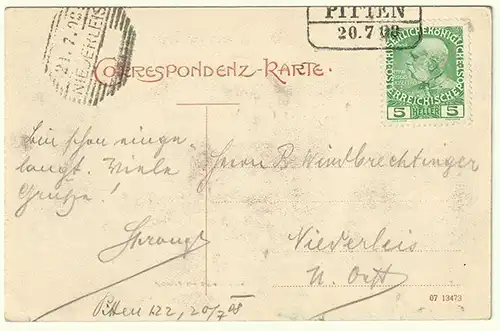 PITTEN
20.7 08
21.7.08
NIEDERLEIS
CORRESPONDENZ-KARTE.
KAISERLICHE KÖNIGLICHE
ÖSTERREICHISCHE
5 HELLER 5
bin schon einge
langt. Viele
Grüße!
Herrn B Windbrechtinger
Niederleis
N. Oest
Pitten 122, 20/7 08
07 13473